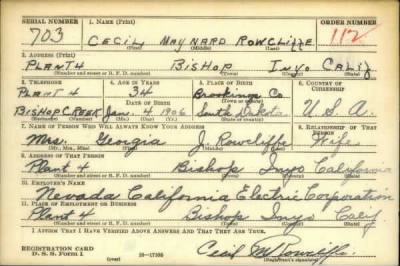 SERIAL NUMBER 1. NAME (Print) ORDER NUMBER
703 CECIL MAYNARD ROWCLIFFE 112
(First) (Middle) (Last)
2. ADDRESS (Print)
PLANT 4 BISHOP INYO CALIF
(Number and street or R. F. D. number) (Town) (County) (State)
3. TELEPHONE 4. AGE IN YEARS 5. PLACE OF BIRTH 6. COUNTRY OF CITIZENSHIP
PLANT 4 34 Brookings Co
DATE OF BIRTH (Town or county)
BISHOP CREEK Jan. 4 1906 South Dakota U.S.A.
(Exchange) (Number) (Mo.) (Day) (Yr.) (State or country)
7. NAME OF PERSON WHO WILL ALWAYS KNOW YOUR ADDRESS 8. RELATIONSHIP OF THAT PERSON
Mrs. Georgia J. Rowcliffe Wife
(Mr., Mrs., Miss) (First) (Middle) (Last)
9. ADDRESS OF THAT PERSON
Plant 4 Bishop Inyo California
(Number and street or R. F. D. number) (Town) (County) (State)
10. EMPLOYER'S NAME
Nevada California Electric Corporation
11. PLACE OF EMPLOYMENT OR BUSINESS
Plant 4 Bishop Inyo Calif
(Number and street or R. F. D. number) (Town) (County) (State)
I AFFIRM THAT I HAVE VERIFIED ABOVE ANSWERS AND THAT THEY ARE TRUE.
REGISTRATION CARD
D. S. S. FORM 1 (over) 16—17105 Cecil M Rowcliffe